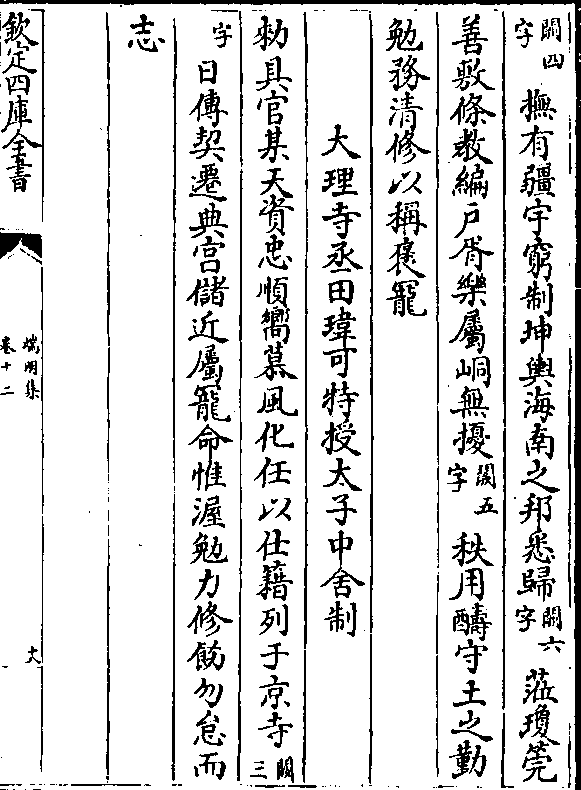 闕四字撫有疆宇窮制坤輿海南之邦悉歸闕六字蒞瓊筦
善敷條教編戶胥樂屬峒無擾闕五字秩用醻守土之勤
勉務清修以稱褒寵
大理寺丞田瑋可特授太子中舍制
勑具官某天資忠順嚮慕風化任以仕籍列于京寺闕三
字日傳契遷典宫儲近屬寵命惟渥勉力修飭勿怠而
志
欽定四庫全書
端明集
卷十二
十八